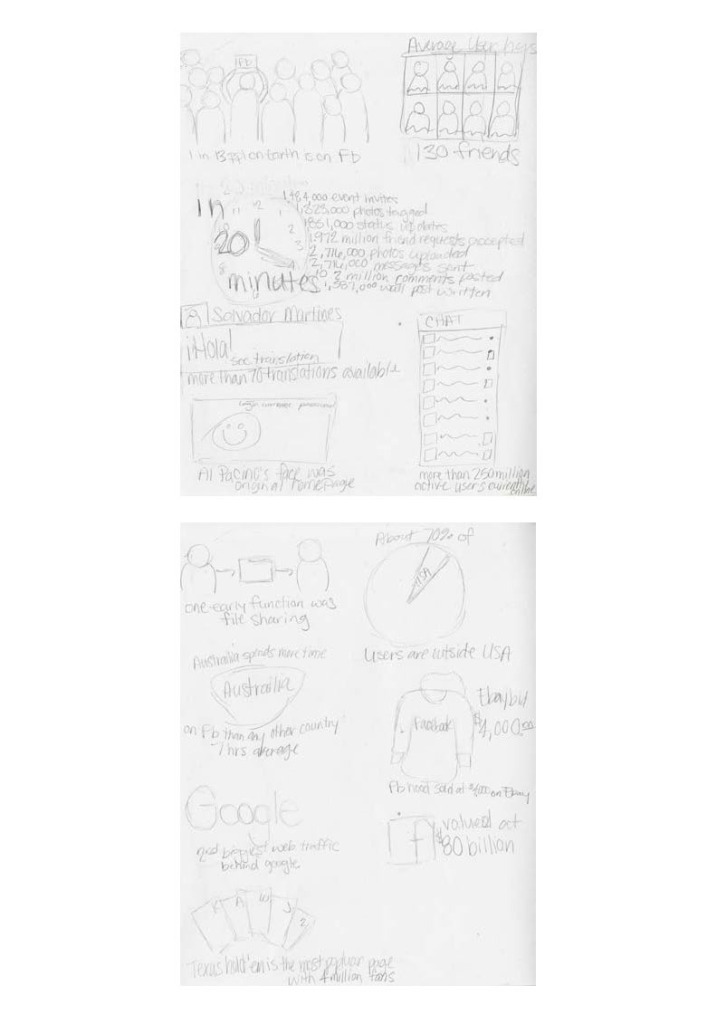 Fb
1 in 13 ppl on Earth is on Fb
Average User has
130 friends
In
20
minutes
1,484,000 event invites
1,323,000 photos tagged
1,851,000 status updates
1.972 million friend requests accepted
2,716,000 photos uploaded
2,716,000 messages sent
10.2 million comments posted
1,587,000 wall post written
Salvador Martines
¡Hola!
see translation
more than 70 translations available
Login username password
Al Pacino's face was
original homepage
CHAT
more than 250 million
active users currently
online
one early function was
file sharing
About 70% of
USA
Users are outside USA
Austrailia spends more time
Austrailia
on Fb than any other country
7 hrs average
Facebook
Ebay bid
$4,000.00
Fb hood sold at on Ebay
Google
2nd biggest web traffic
behind google
f
valued at
$80 billion
K A 10 J 2
Texas hold'em is the most popular page
with million fans